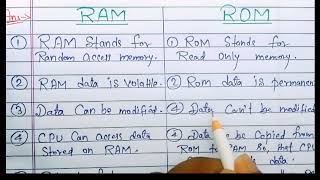 Ans:
RAM
ROM
① RAM Stands for
Random access memory.
① ROM Stands for
Read Only memory.
② RAM data is volatile.
② ROM data is permanent
③ Data Can be modified.
④ Data Can't be modified
④ CPU Can access data
Stored on RAM.
④ Data be Copied from
ROM to RAM so that CPU
data.